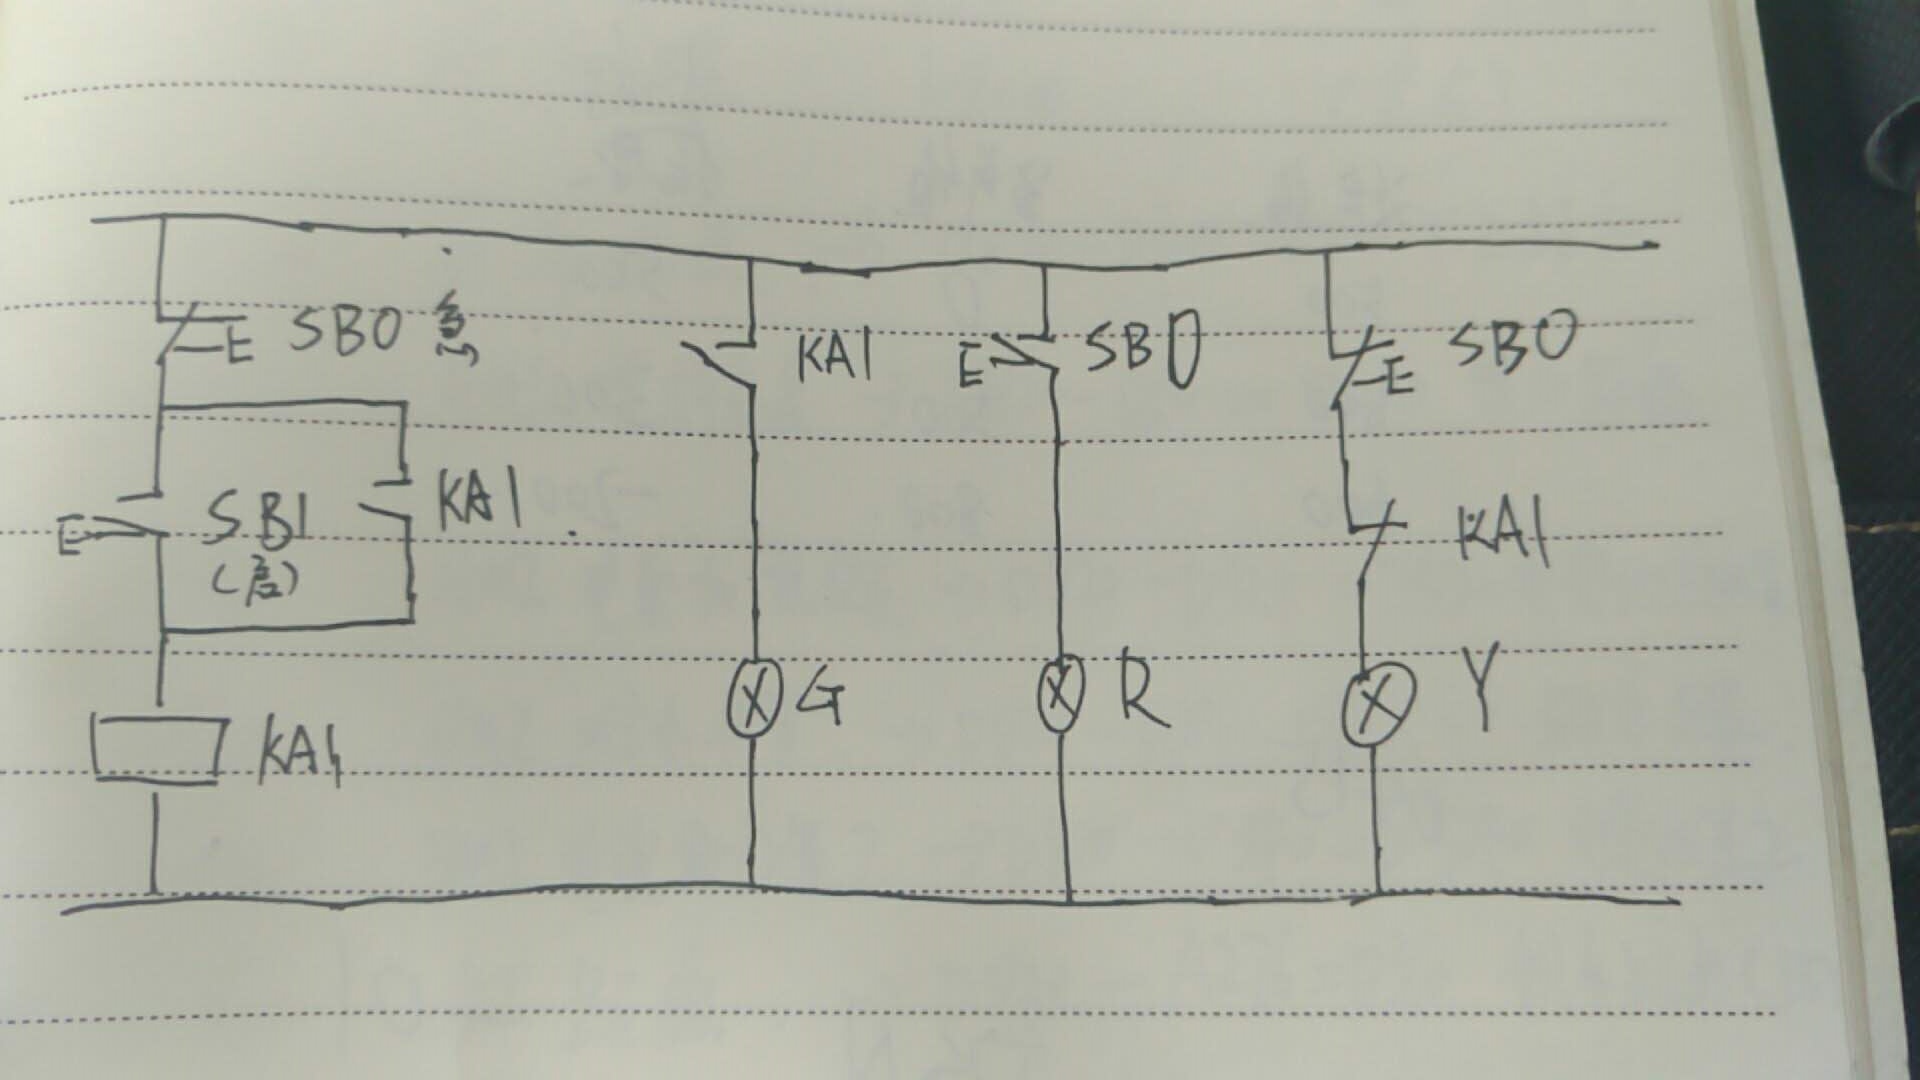 E SB0 急
KA1
E SB0
E SB0
E SB1
(启)
KA1
KA1
G
R
Y
KA1